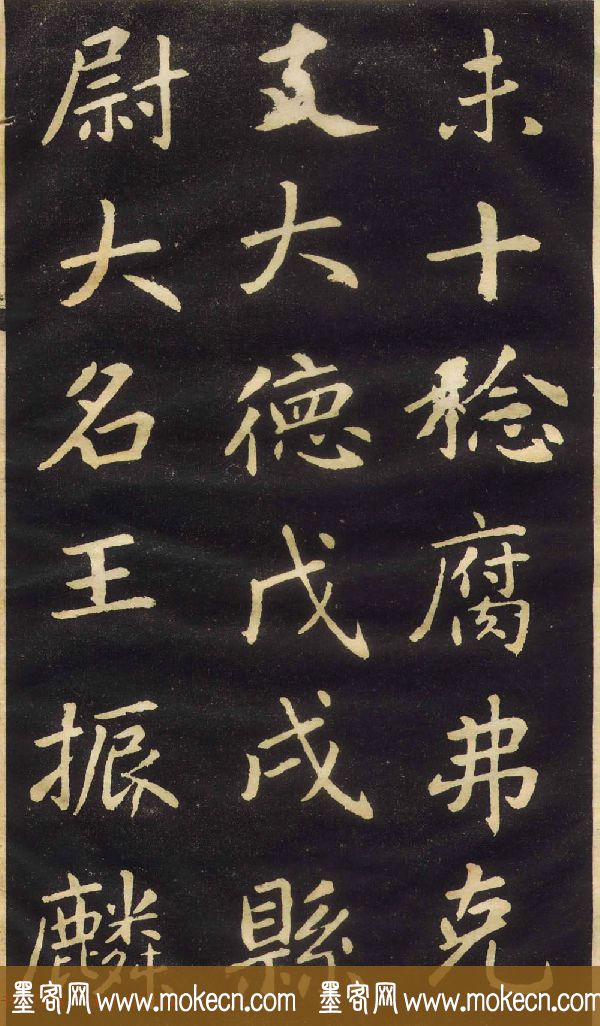 未十稔腐弗克
支大德戊戌縣
尉大名王振麟
墨客网 www.mokecn.com 墨客网 www.mokecn.com